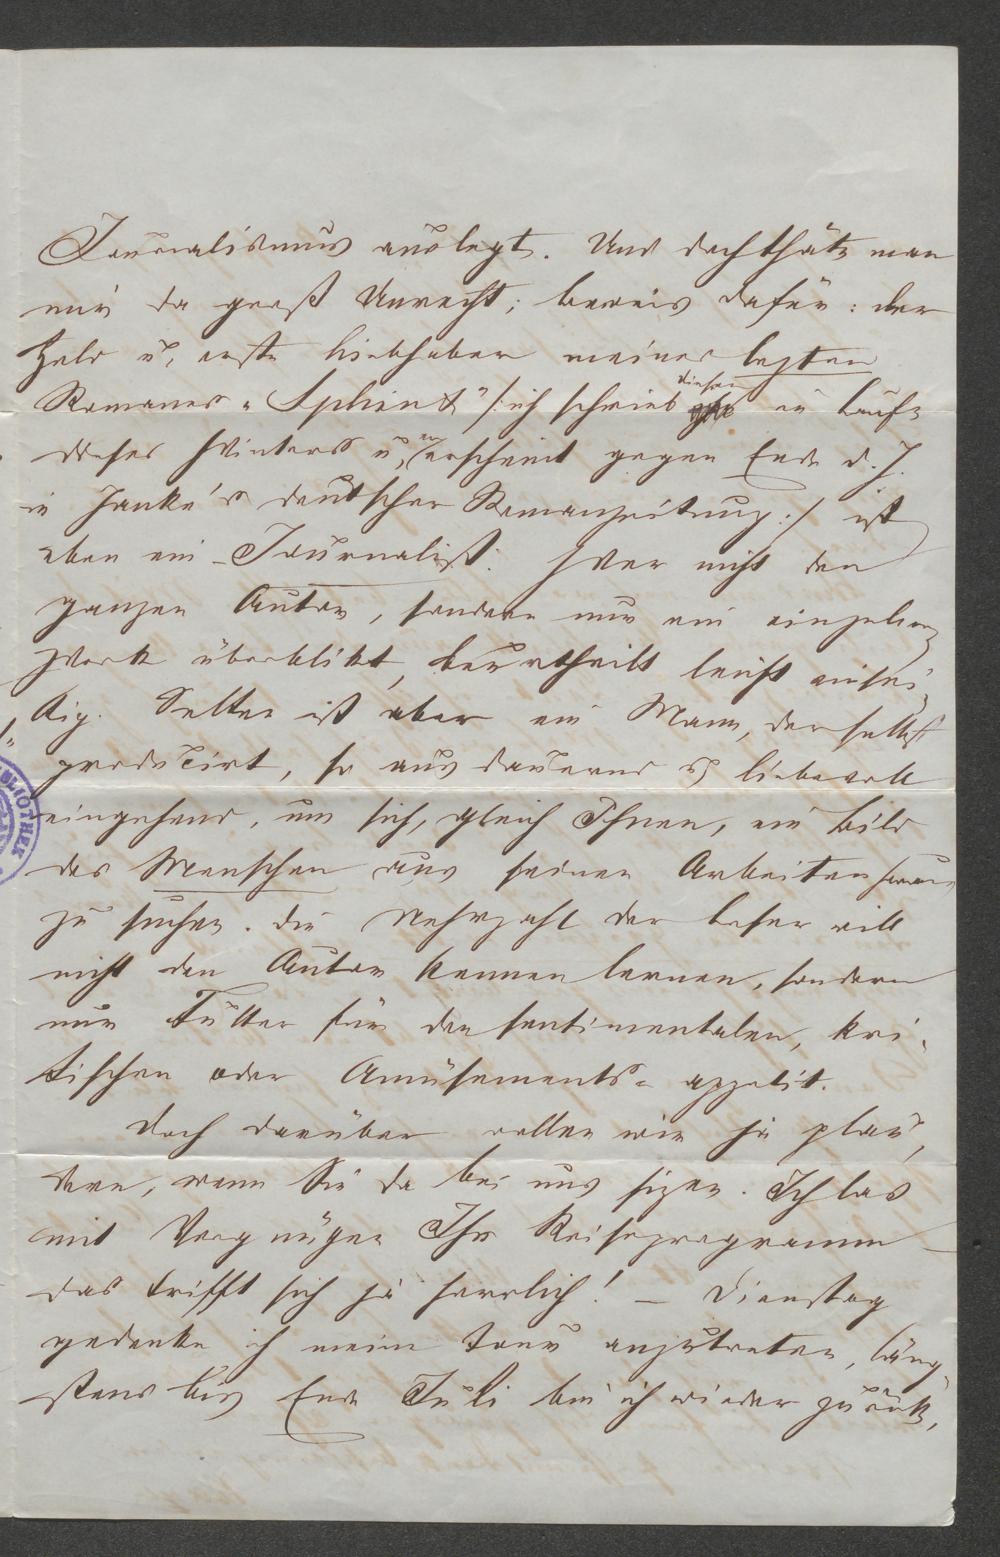 Journalismus auslegt. Und doch thäte man
mir da groß Unrecht; beweis dafür: der
Held u. erste Liebhaber meines lezten
Romanes „Sphinx" /: ich schrieb diesen im Laufe
dieses Winters u. er erscheint gegen Ende d. J.
in Janke's deutscher Romanzeitung :/ ist
eben ein – Journalist. Wer nicht den
ganzen Autor, sondern nur ein einzelnes
Werk überblikt, beurtheilt leicht einsei-
tig. Selten ist aber ein Mann, der selbst
producirt, so ausdauernd u. liebevoll
eingehend, um sich, gleich Ihnen, ein Bild
des Menschen aus seinen Arbeiten heraus
zu suchen. Die Mehrzahl der Leser will
nicht den Autor kennen lernen, sondern
nur Futter für den sentimentalen, kri-
tischen oder Amüsements-appetit.
Doch darüber wollen wir ja plau-
dern, wenn Sie da bei uns sizen. Ich las
mit Vergnügen Ihr Reiseprogramm –
das trifft sich ja herrlich! – Dienstag
gedenke ich meine Tour anzutreten, läng-
stens bis Ende Juli bin ich wieder zurük,
BLIOTHEK